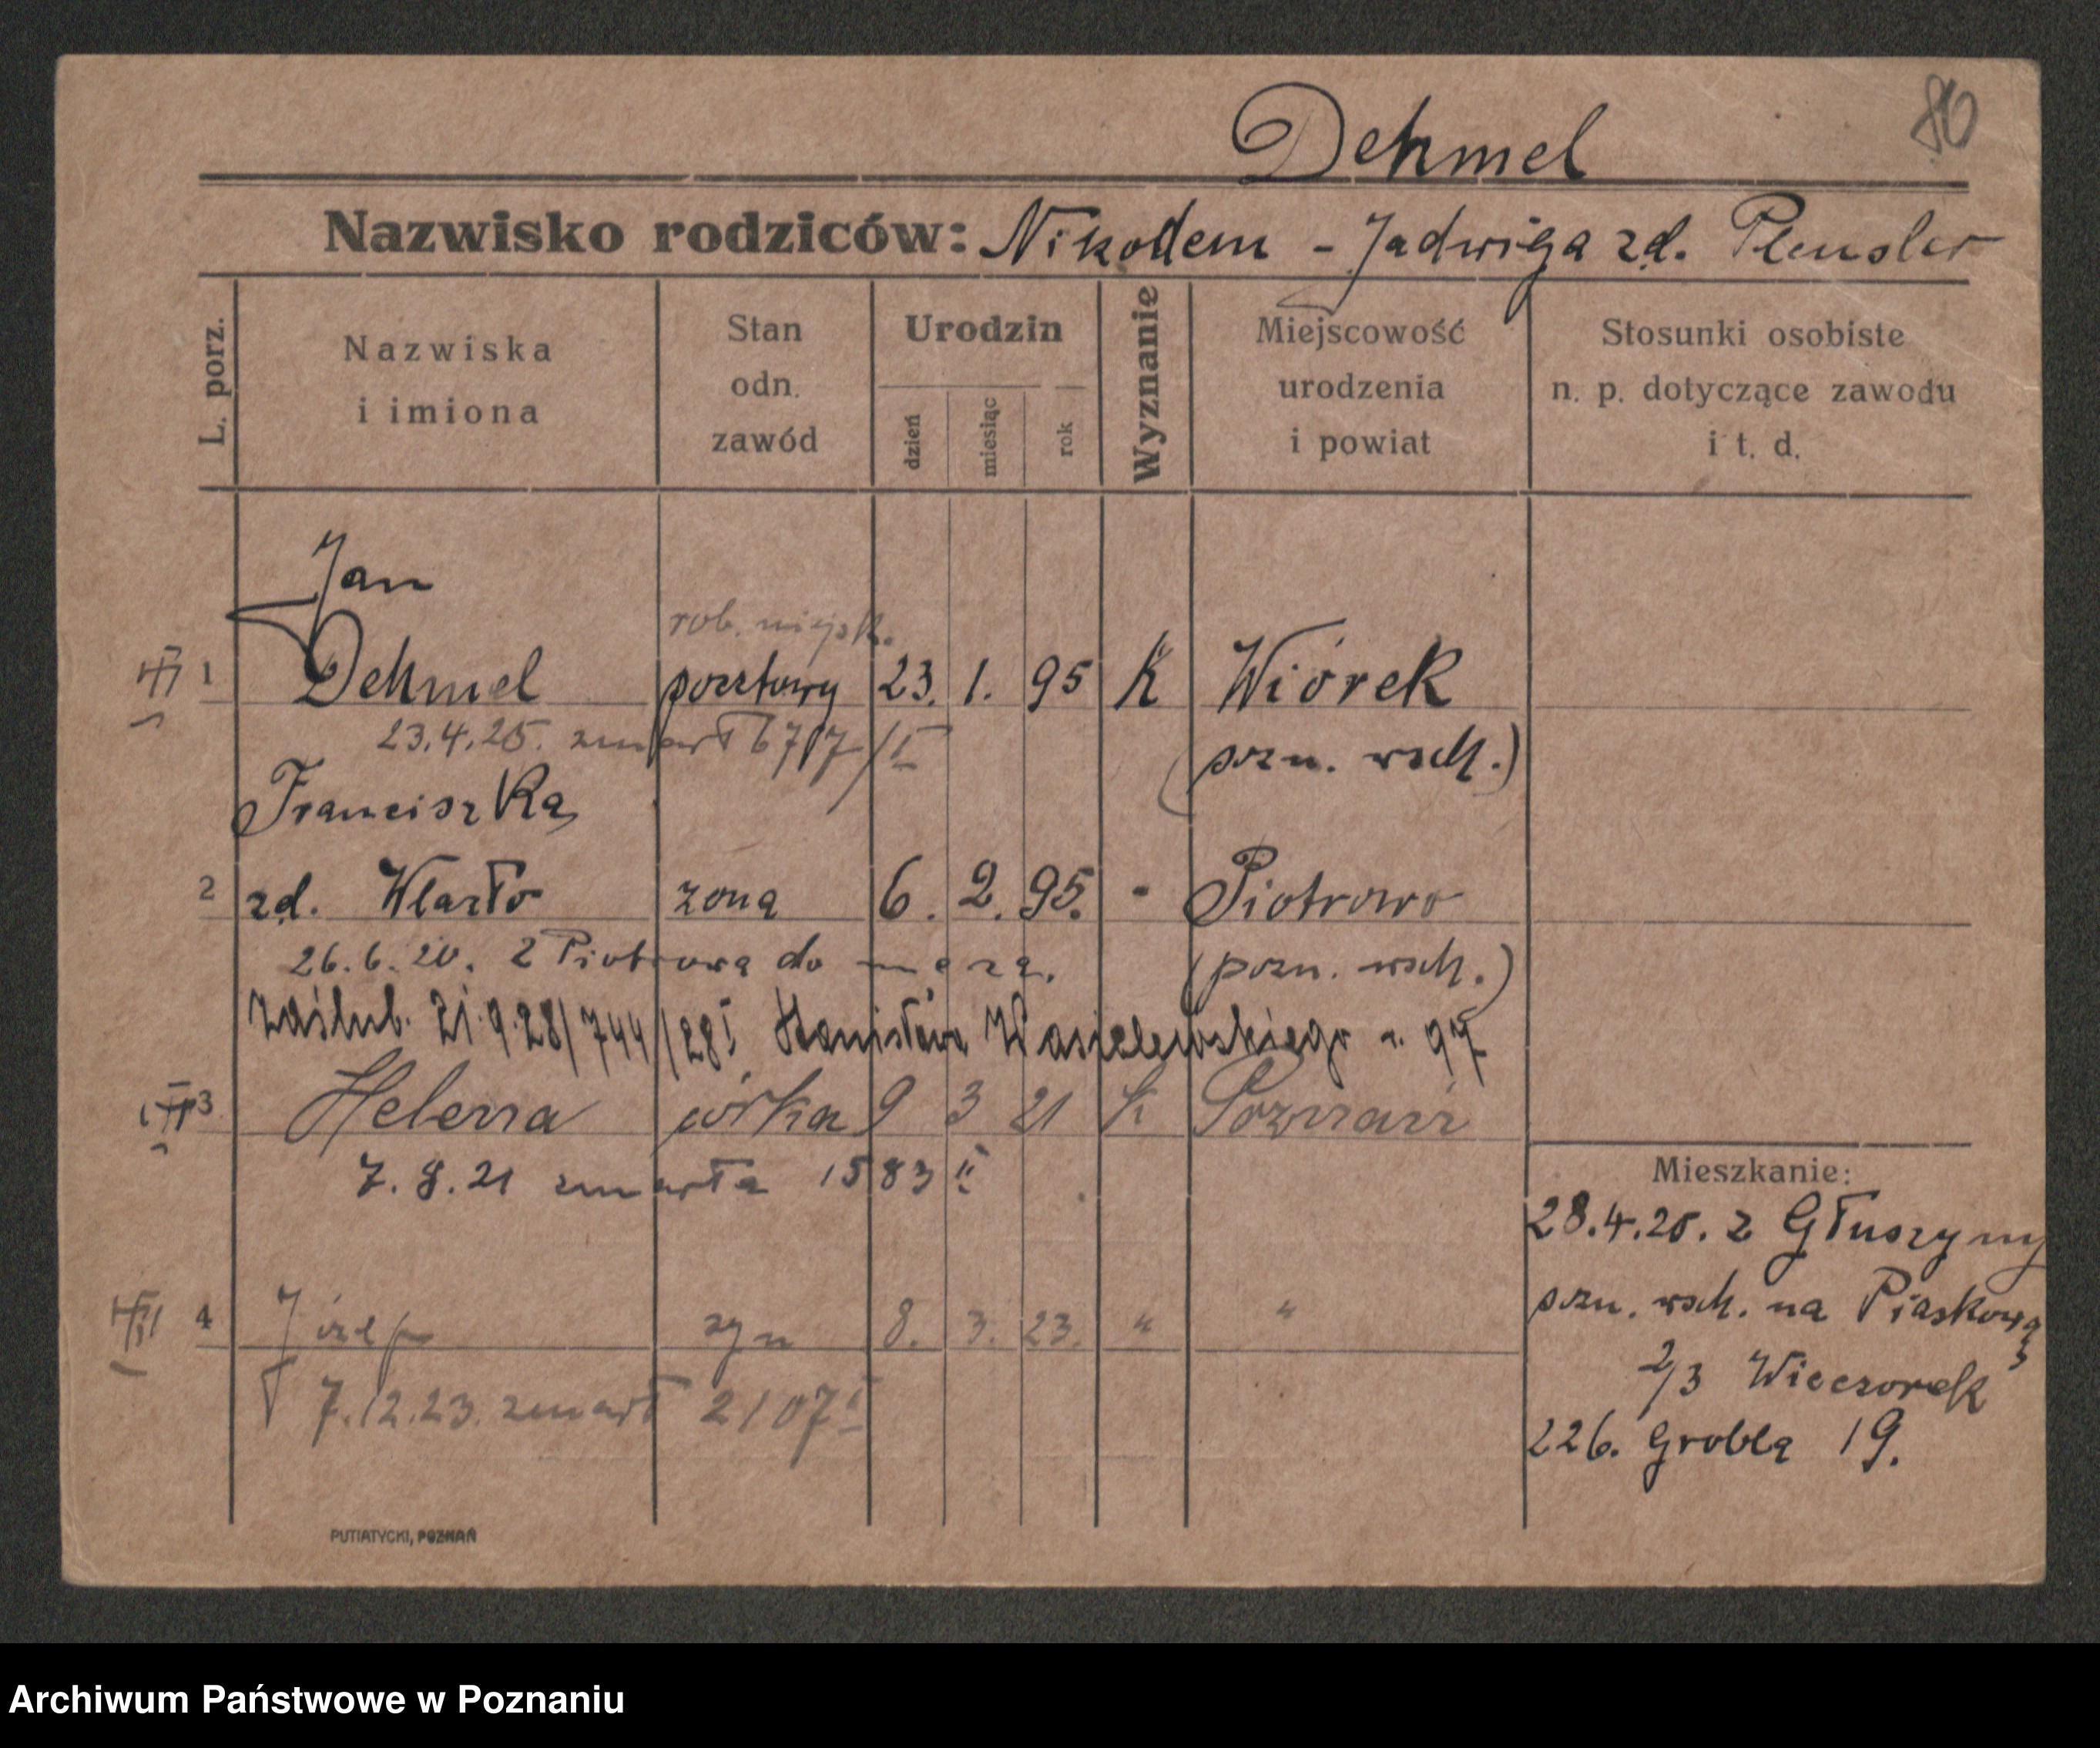 86
Dehmel
Nazwisko rodziców: Nikodem - Jadwiga zd. Plensler
L. porz.
Nazwiska i imiona
Stan odn. zawód
Urodzin
dzień
miesiąc
rok
Wyznanie
Miejscowość urodzenia i powiat
Stosunki osobiste n. p. dotyczące zawodu i t. d.
Jan
rob. miejsk.
1 Dehmel pocztowy 23. 1. 95 K Wiórek
23.4.25. zmarł 677/I
(pozn. wsch.)
Franciszka
2 zd. Wlazło żona 6. 2. 95. " Piotrowo
26.6.20. z Piotrowa do męża.
(pozn. wsch.)
zaślub. 21.9.28/744/28I Stanisława Wasielewskiego u. 97
3 Helena córka 9 3 21 K Poznań
7.8.21 zmarła 1583 II
4 Józef syn 8. 3. 23. " "
7.12.23. zmarł 2107 I
Mieszkanie:
28.4.20. z Głuszyny
pozn. wsch. na Piaskową
2/3 Wieczorek
226. Grobla 19.
PUTIATYCKI, POZNAŃ
Archiwum Państwowe w Poznaniu